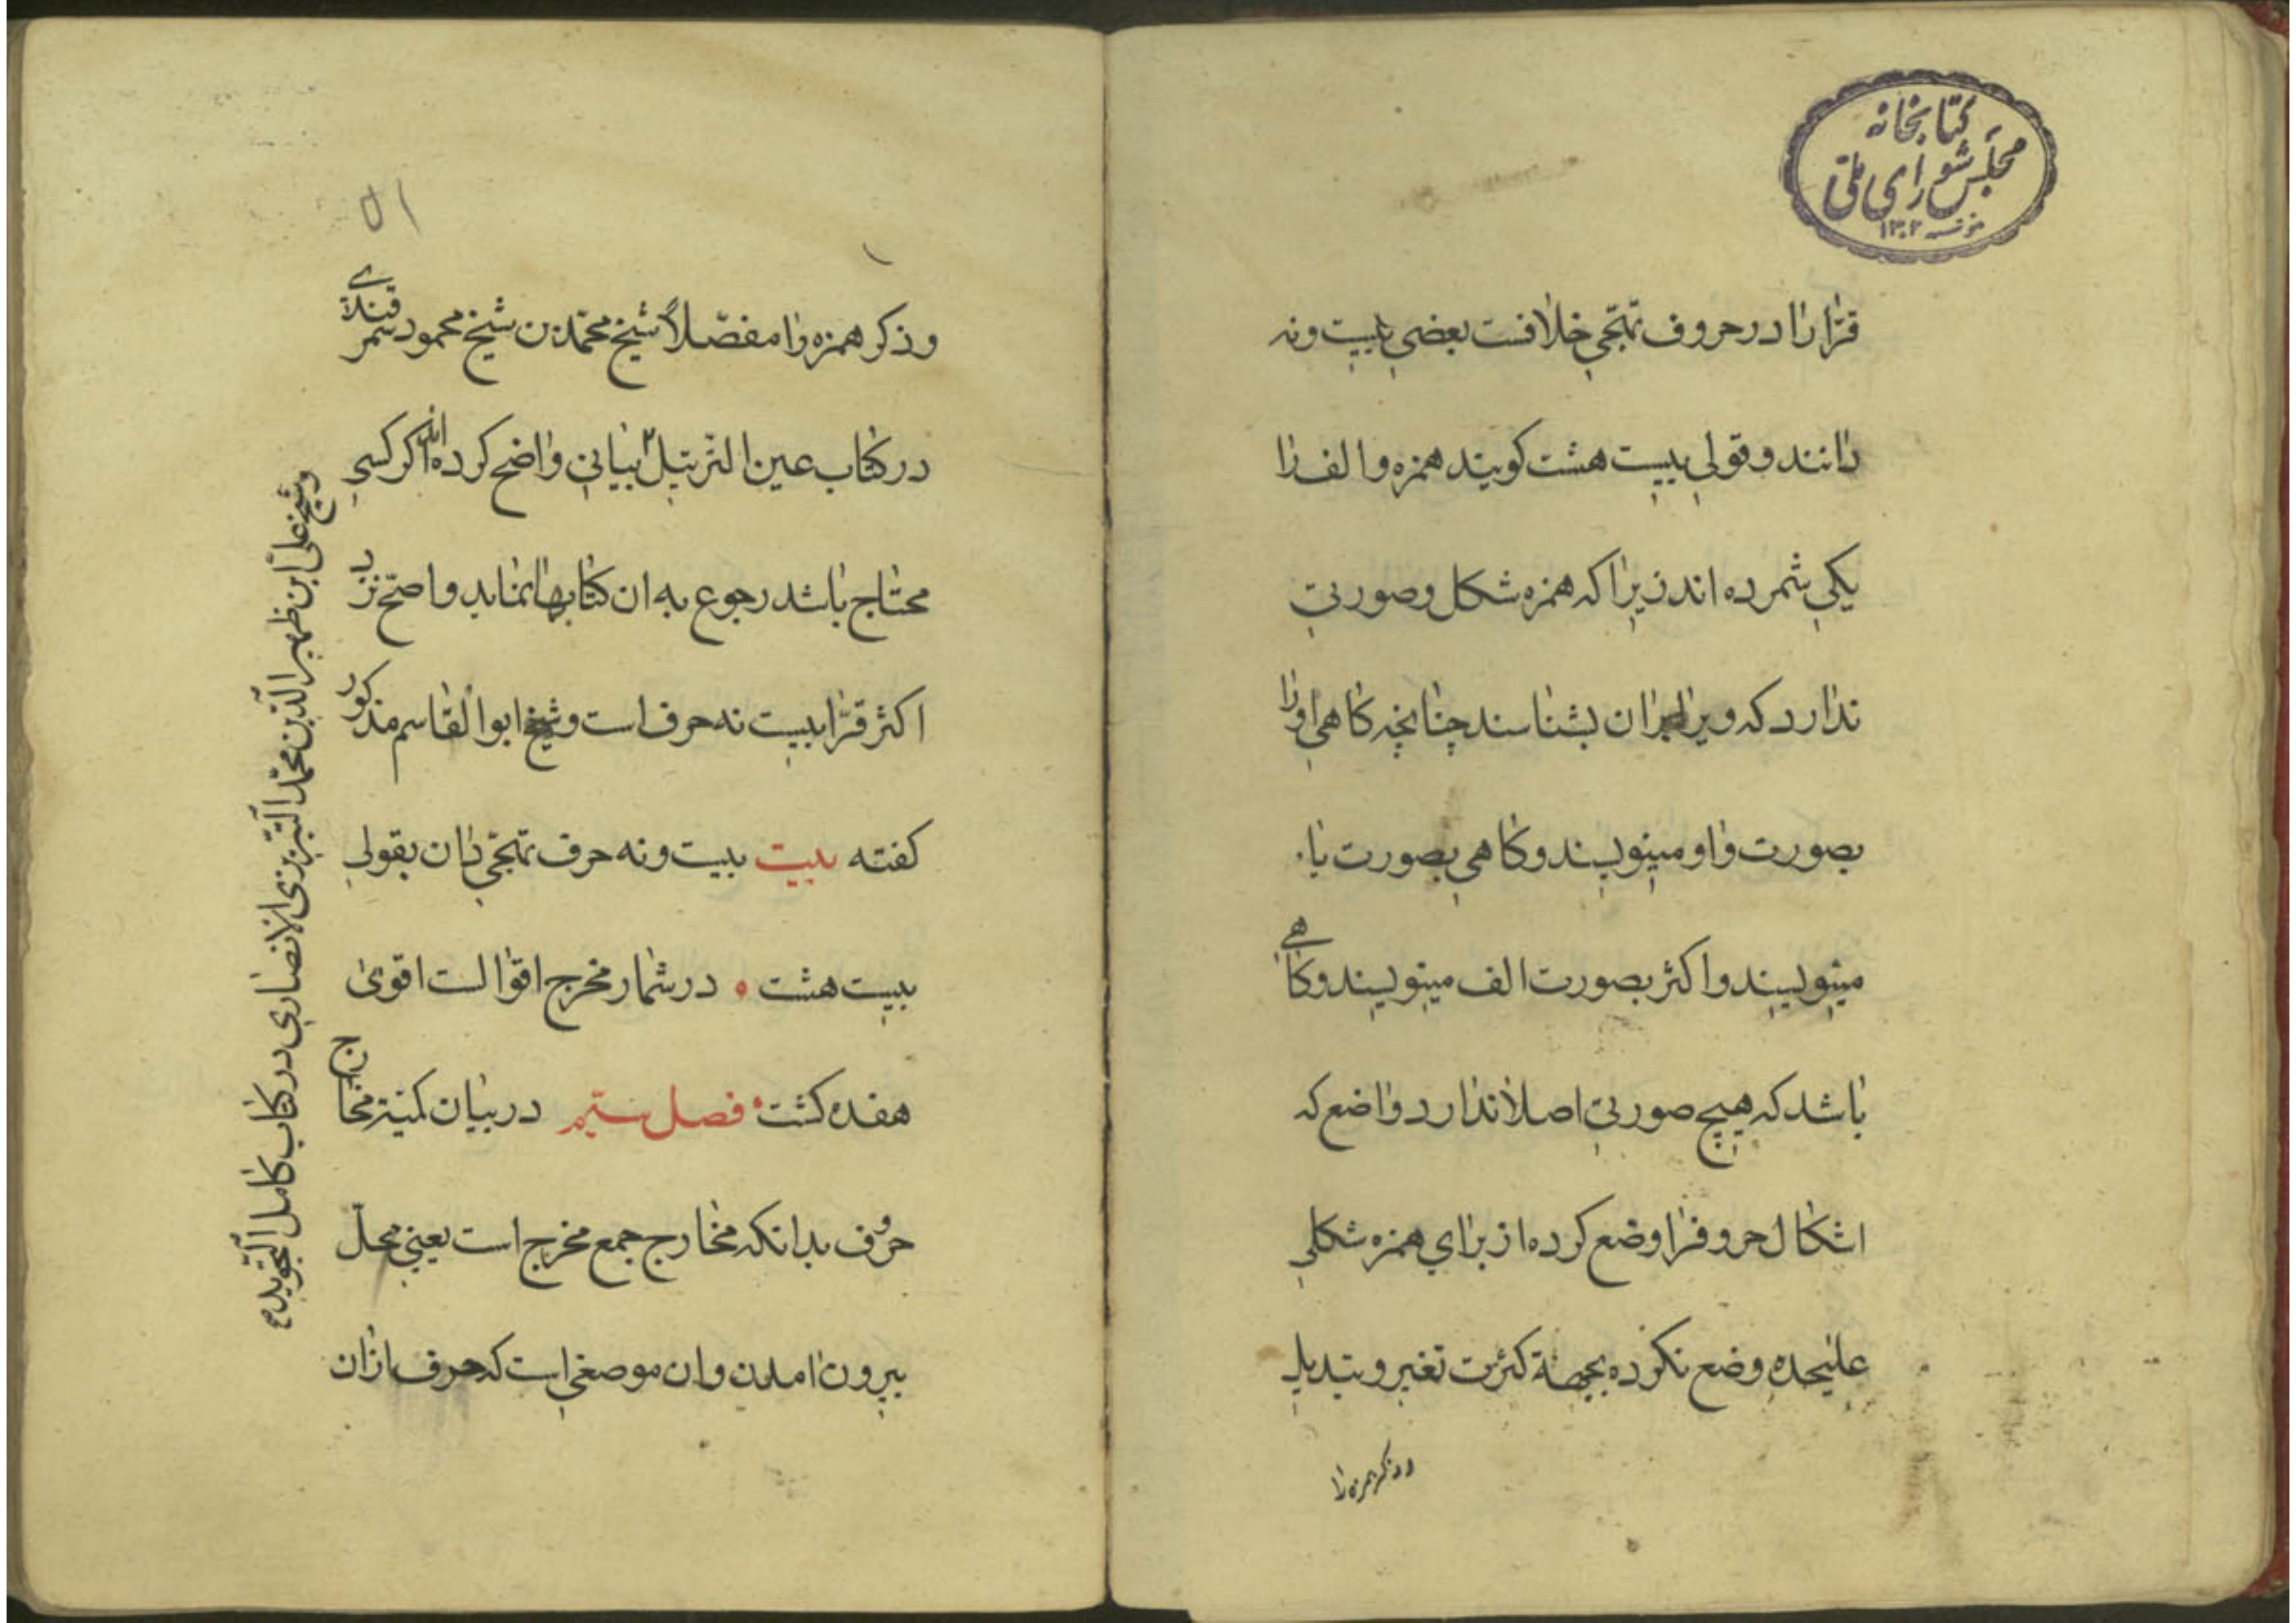 کتابخانه
مجلس شورای ملی
۱۳۰۲
قرّا را در حروف تهجّی خلافست بعضی بیست ونه
دانند و قولی بیست هشت کویند همزه و الف را
یکی شمرده اند زیرا که همزه شکل و صورتی
ندارد که ویرا بران بشناسند چنانچه کاهی اورا
بصورت واو مینویسند و کاهی بصورت یا
مینویسند و اکثر بصورت الف مینویسند و کاهی
باشد که هیچ صورتی اصلا ندارد واضع که
اشکال حروفرا وضع کرده از برای همزه شکلی
علیحده وضع نکرده بجهة کثرت تغیر و تبدیل
و ذکر همزه را
و ذکر همزه را مفصّلاً شیخ محمّد بن شیخ محمود سمرقندی
در کتاب عین الترتیل بیانی واضح کرده اکر کسی
محتاج باشد رجوع به ان کتابها نماید و اصحّ نزد
اکثر قرّا بیست نه حرف است و شیخ ابوالقاسم مذکور
کفته بیت بیست ونه حرف تهجّی دان بقولی
بیست هشت ٥ در شمار مخرج اقوالست اقوی
هفده کشت فصل سیّم در بیان کمیّة مخارج
حروف بدانکه مخارج جمع مخرج است یعنی محلّ
بیرون امدن و ان موضعی است که حرف ازان
و شیخ علی ابن ظهیر الدّین محمّد التّبریزی الانصاری در کتاب کامل التّجوید